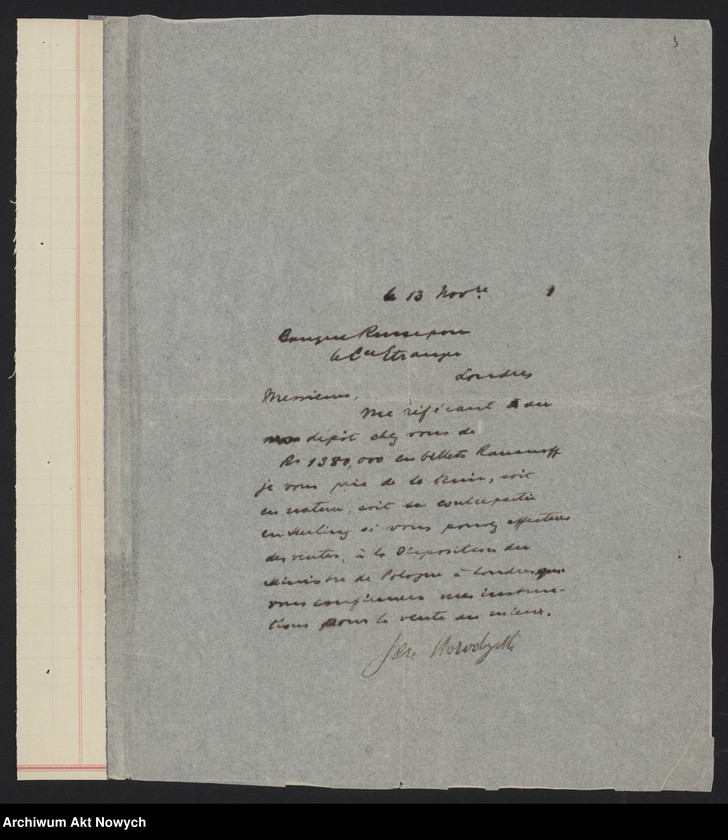 3
le 13 Novre
Banque Russe pour
le Cce Etranger
Londres
Messieurs,
Me référant au
dépôt chez vous de
Rs 1380,000 en billets Romanoff
je vous prie de le tenir, soit
en nature, soit sa contrepartie
en sterling si vous pouvez effectuer
des ventes, à la disposition du
Ministre de Pologne à Londres, qui
vous confirmera mes instruc-
tions pour la vente au mieux.
Jan Horodyski
Archiwum Akt Nowych